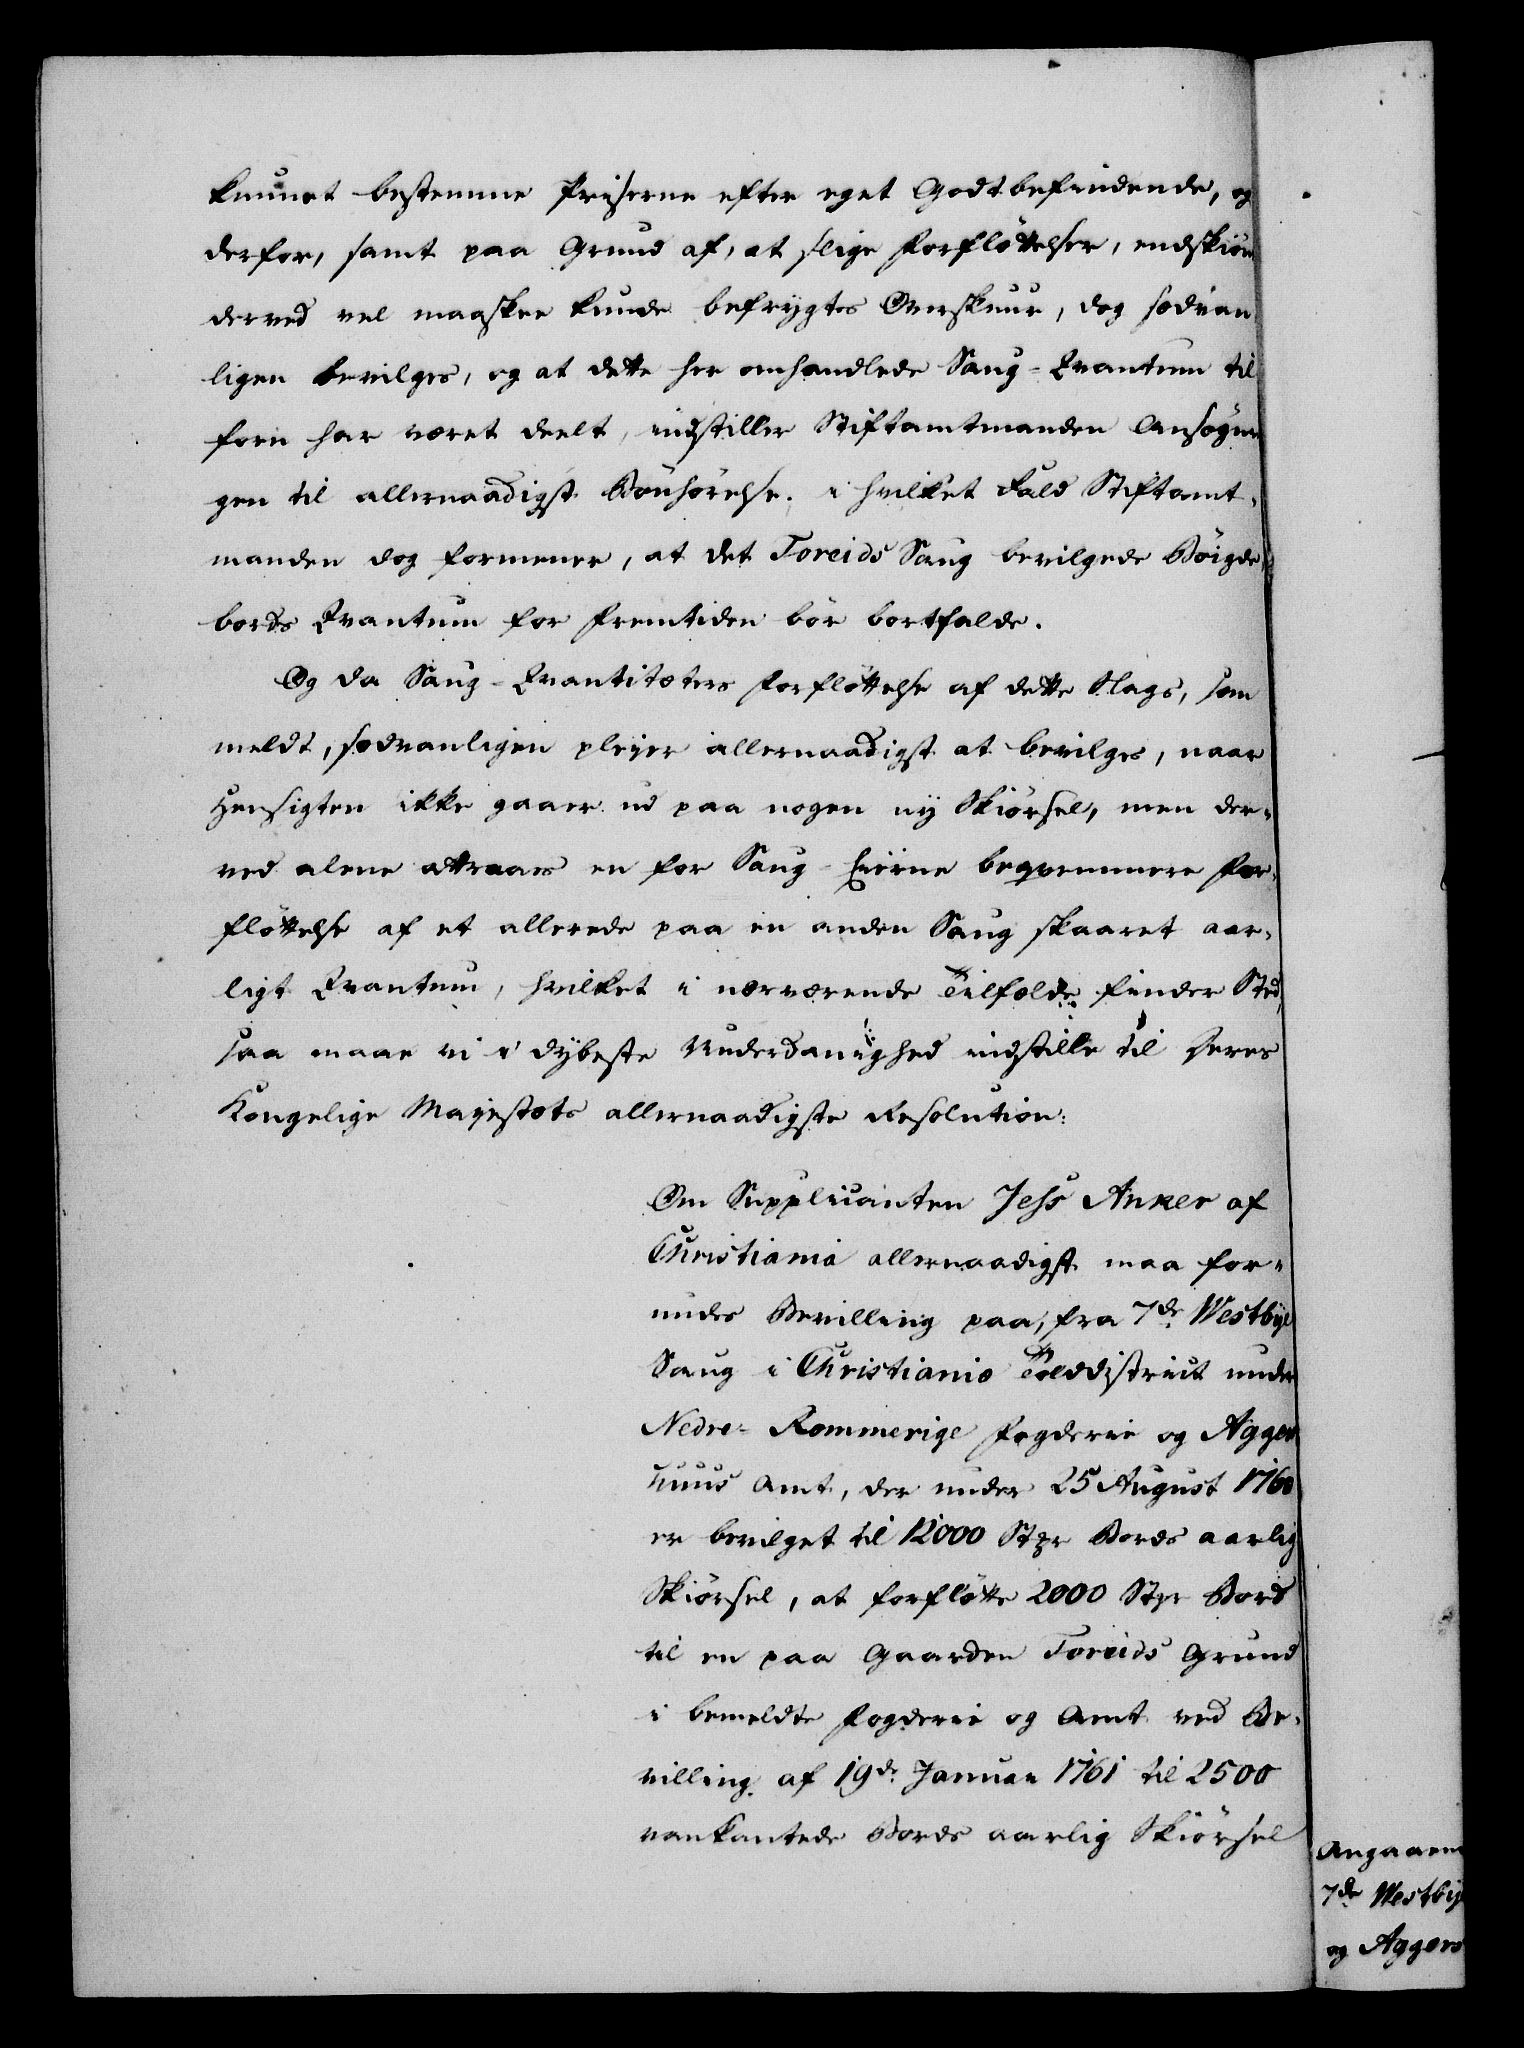 kunnet bestemme Priserne efter eget Godtbefindende, og
derfor, samt paa Grund af, at slige Forfløttelser, endskiøn
derved vel maaskee kunde befrygtes Overskuur, dog sædvan
ligen bevilges, og at dette her omhandlede Saug-Qvantum til
forn har været deelt, indstiller Stiftamtmanden Ansøgnin
gen til allernaadigst Bønhørelse. i hvilket Fald Stiftamt-
manden dog formener, at det Toreids Saug bevilgede Bøigde
bords Qvantum for Fremtiden bør bortfalde.
Og da Saug-Qvantiteters Forfløttelse af dette Slags, som
meldt, sædvanligen pleier allernaadigst at bevilges, naar
Hensigten ikke gaaer ud paa nogen ny Skiørsel, men der-
ved alene attraaes en for Saug-Eierne beqvemmere For-
fløttelse af et allerede paa en anden Saug skaaret aar-
ligt Qvantum, hvilket i nærværende Tilfælde finder Sted,
saa maae vi i dybeste Underdanighed indstille til Deres
Kongelige Majestæts allernaadigste Resolution:
Om Supplicanten Jess Anker af
Christiania allernaadigst maa for-
undes Bevilling paa, fra 7de Westbye
Saug i Christiania Tolddistrict under
Nedre-Rommerige Fogderie og Agger
huus Amt, der under 25 August 1760
er bevilget til 12000 Stkr Bords aarlig
Skiørsel, at forfløtte 2000 Stkr Bord
til en paa Gaarden Toreids Grund
i bemeldte Fogderie og Amt ved Be-
villing af 19de Januar 1761 til 2500
vankantede Bords aarlig Skiørsel
Angaaen
7de Westby
og Aggers